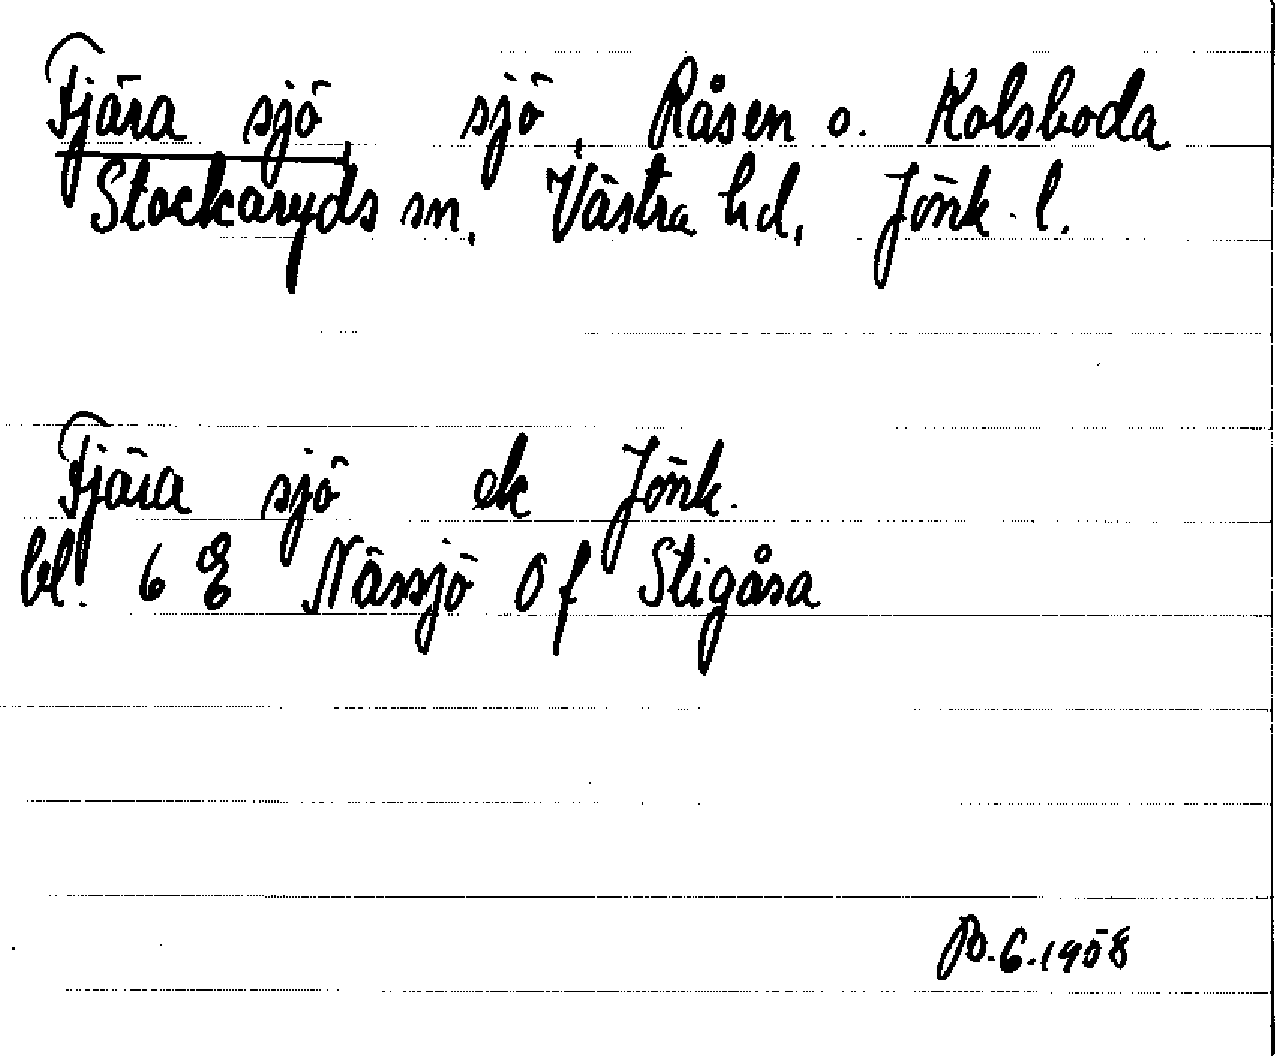 Fjära sjö, sjö, Råsen o. Kolsboda
Stockaryds sn, Västra hd, Jönk. l.
Fjära sjö ek Jönk.
bl. 6 E Nässjö 0 f Stigåsa
6.1958